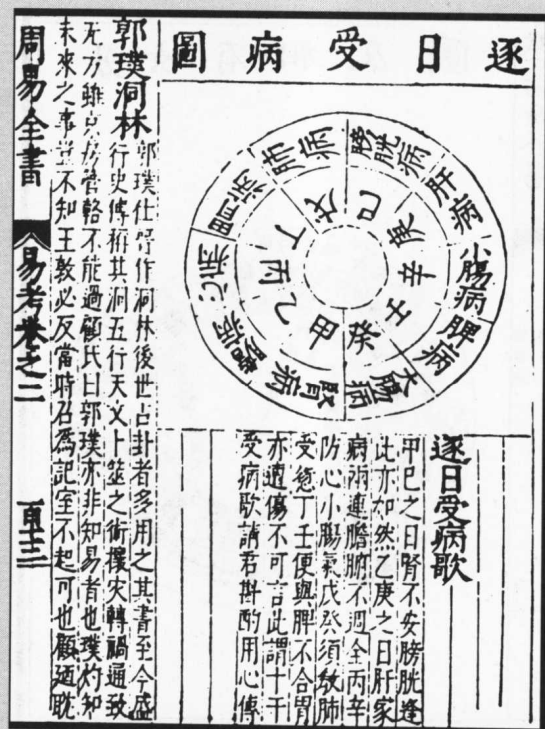 逐日受病圖
膀胱病
肝病
小腸病
脾病
大腸病
腎病
膽病
心病
胃病
肺病
己
庚
辛
壬
癸
甲
乙
丙
丁
戊
逐日受病歌
甲巳之日腎不安膀胱逢
此亦如然乙庚之日肝家
病兩連膽腑不週全丙辛
防心小腸氣戊癸須肺
受丁壬便與脾不合胃
亦遭傷不可言此謂十干
受病歌請君斟酌用心傳
郭璞洞林 郭璞仕晉作洞林後世占卦者多用之其書至今盛
行史傳稱其洞五行天文卜筮之術攘灾轉禍通致
无方雖京房管輅不能過顧氏曰郭璞亦非知易者也璞灼知
未來之事豈不知王敦必反當時召爲記室不起可也顧廼耽
周易全書 易考卷之二 百十三